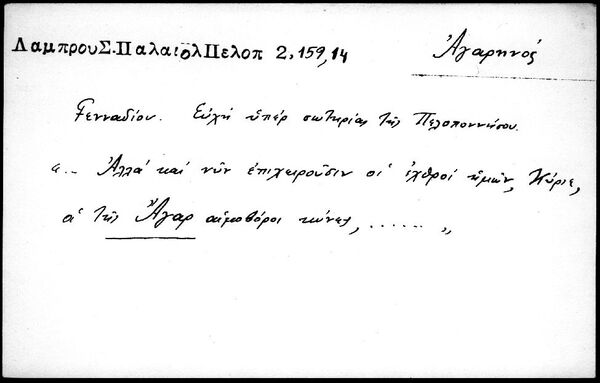 ΛαμπρουΣ.ΠαλαιολΠελοπ 2,159,14
Ἀγαρηνός
Γενναδίου. Εὐχή ὑπέρ σωτηρίας τῆς Πελοποννήσου.
"... Ἀλλά καί νῦν ἐπιχειροῦσιν οἱ ἐχθροί ἡμῶν, Κύριε,
οἱ τῆς Ἄγαρ αἱμοβόροι κύνες, ...... "